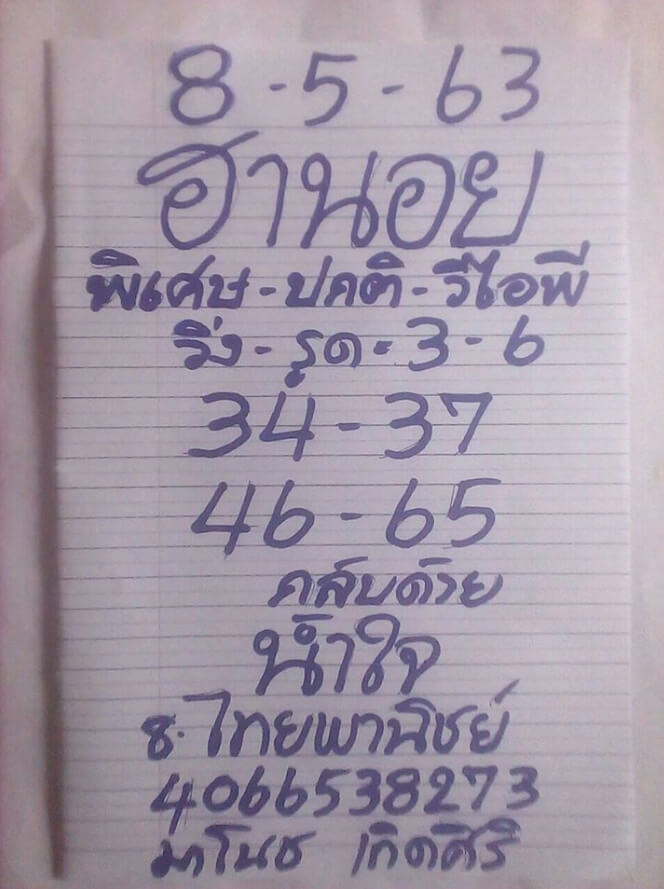 8-5-63
ฮานอย
พิเศษ-ปกติ-วีไอพี
วิ่ง-รูด-3-6
34-37
46-65
กลับด้วย
น้ำใจ
ธ.ไทยพานิชย์
4066538273
มาโนช เกิดศิริ